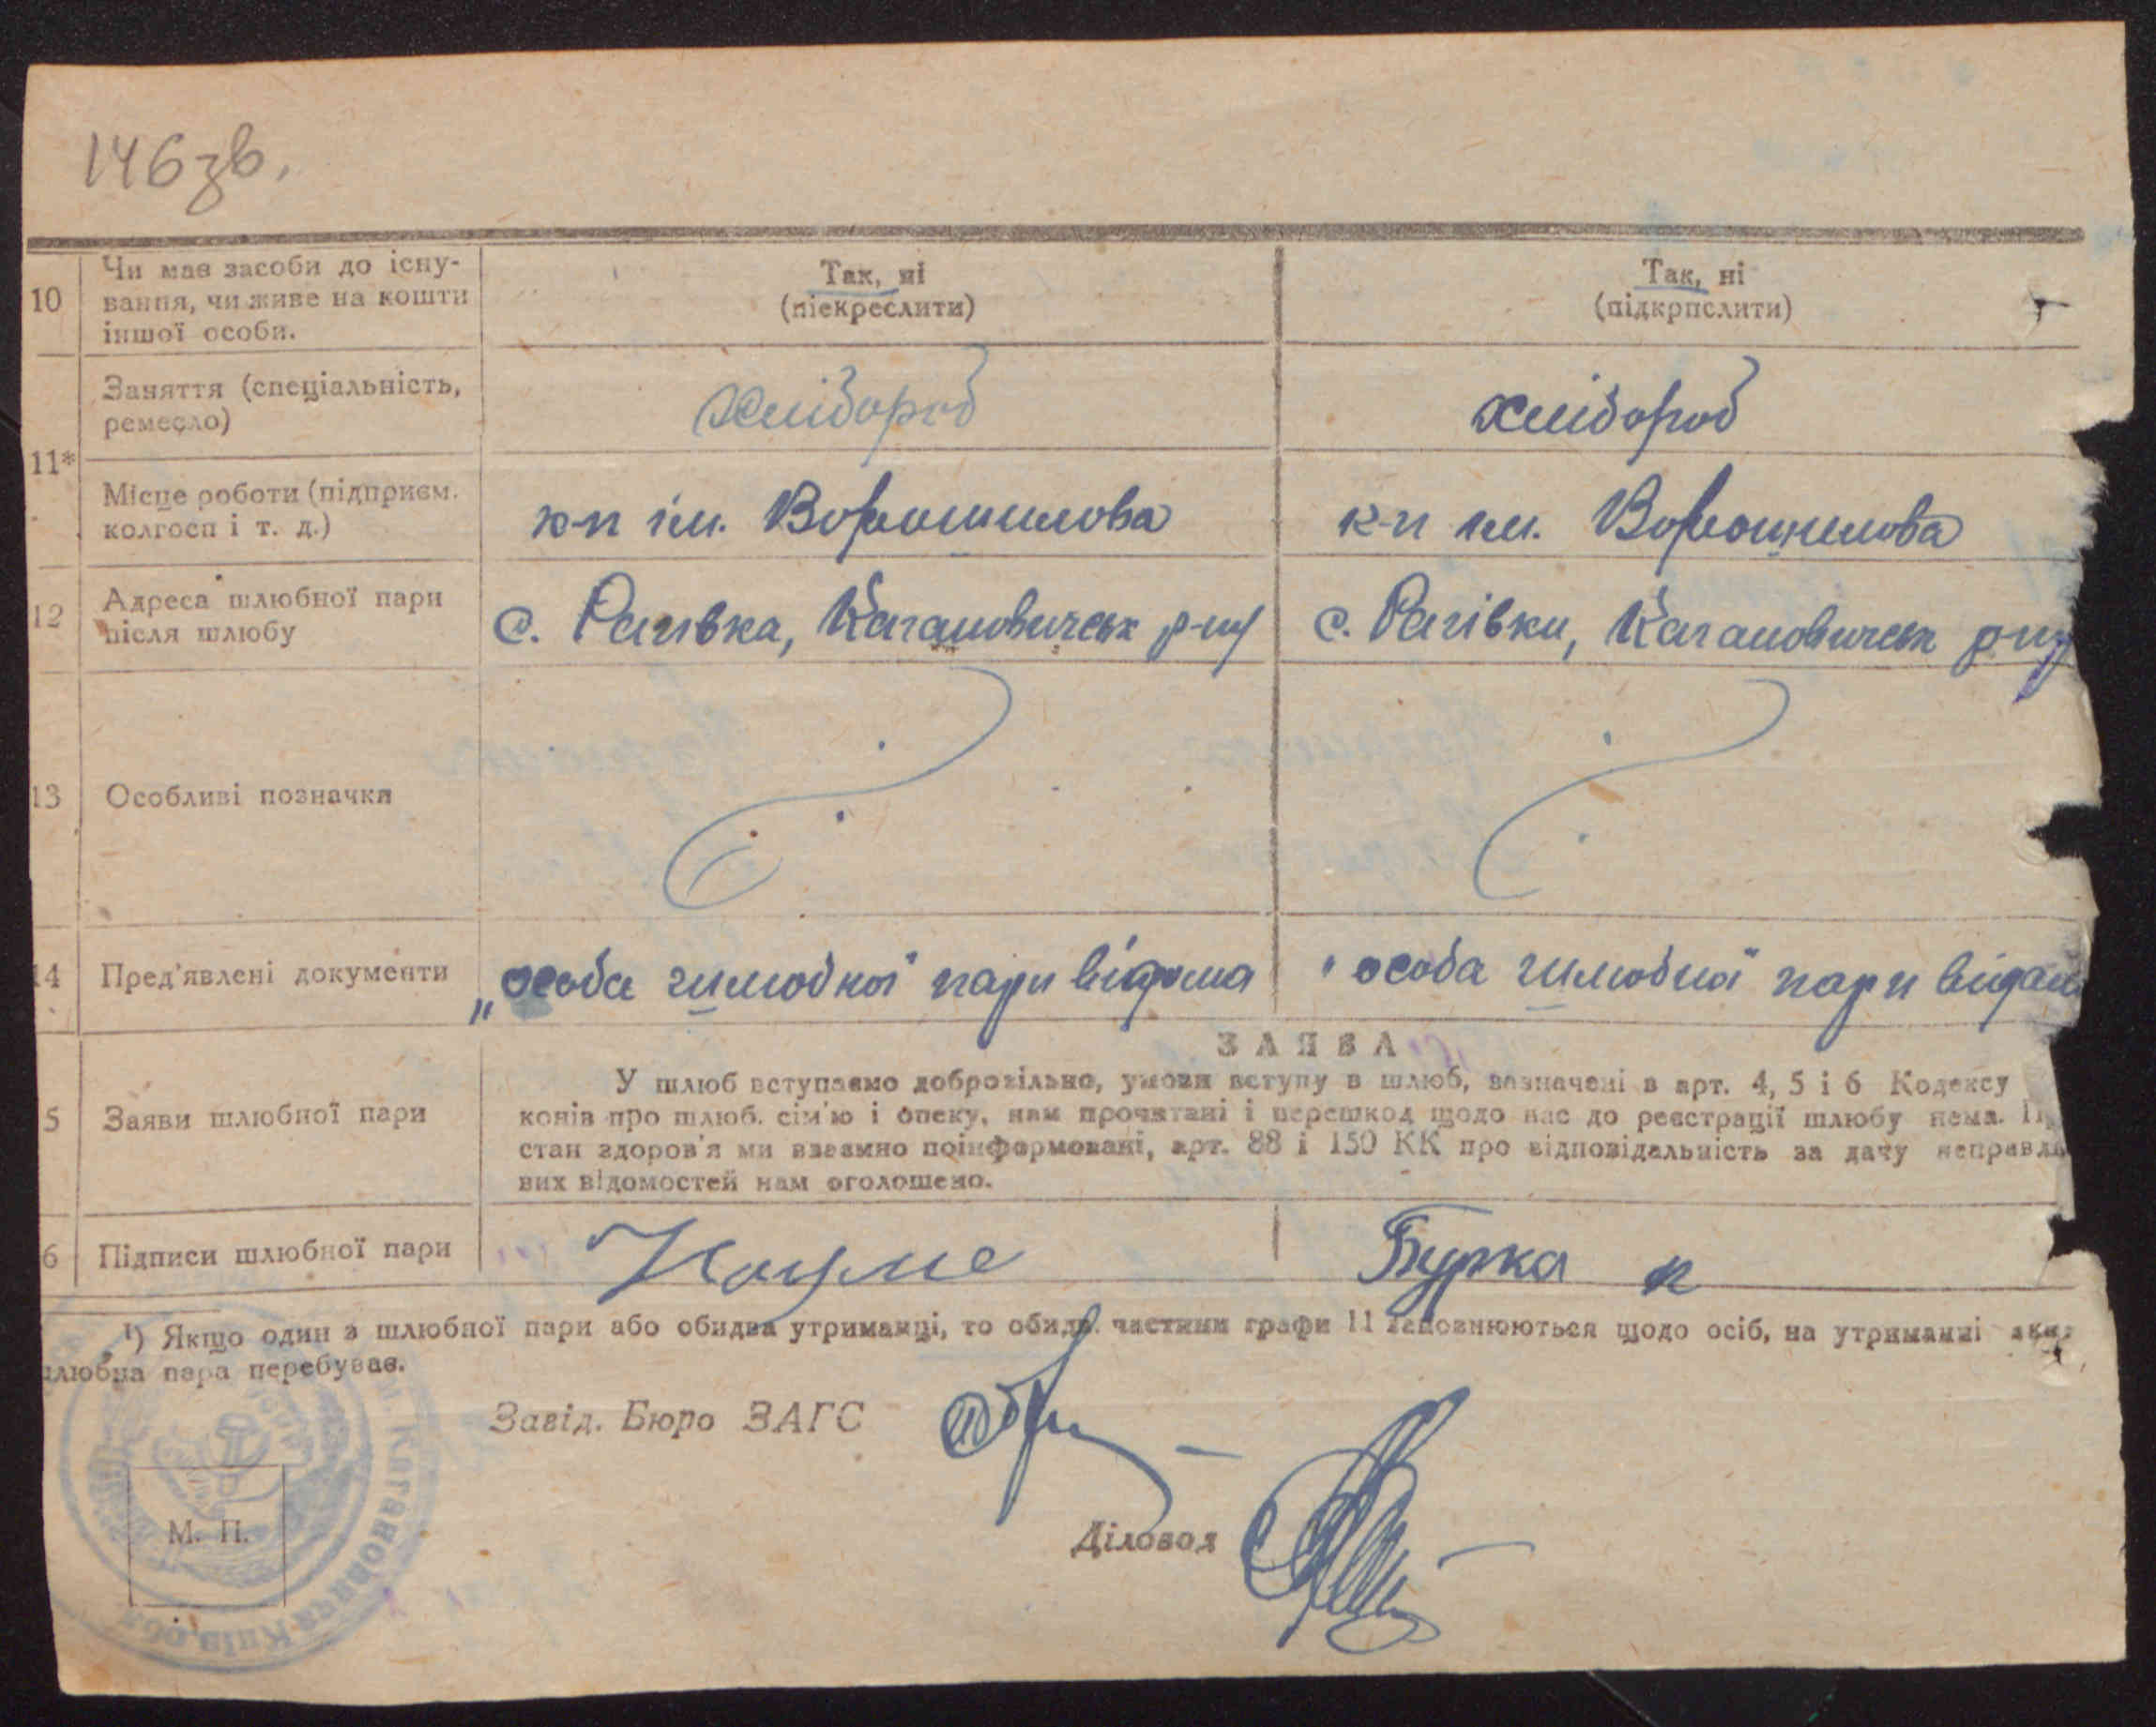 146зв.
10
Чи має засоби до існу-
вання, чи живе на кошти
іншої особи.
Так, ні
(піекреслити)
Так, ні
(підкрпслити)
11*
Заняття (спеціальність,
ремесло)
хлібороб
хлібороб
Місце роботи (підприєм.
колгосп і т. д.)
к-п ім. Ворошилова
к-п ім. Ворошилова
12
Адреса шлюбної пари
після шлюбу
с. Рагівка, Кагановичськ р-ну
с. Рагівки, Кагановичськ р-ну
13
Особливі позначки
14
Пред'явлені документи
„особа шлюбної пари відома
особа шлюбної пари
ЗАЯВА
5
Заяви шлюбної пари
У шлюб вступаємо добровільно, умови вступу в шлюб, зазначені в арт. 4, 5 і 6 Кодексу
конів про шлюб. сім'ю і опеку, нам прочитані і перешкод щодо нас до реєстрації шлюбу нема.
стан здоров'я ми взаємно поінформовані, арт. 88 і 150 КК про відповідальність за дачу неправд
вих відомостей нам оголошено.
6
Підписи шлюбної пари
Бурка
¹) Якщо один з шлюбної пари або обидва утриманці, то обидв. частини графи 11 заповнюються щодо осіб, на утриманні яких
шлюбна пара перебуває.
Завід. Бюро ЗАГС
Діловод
М. П.
м. Кагановича Київ. обл